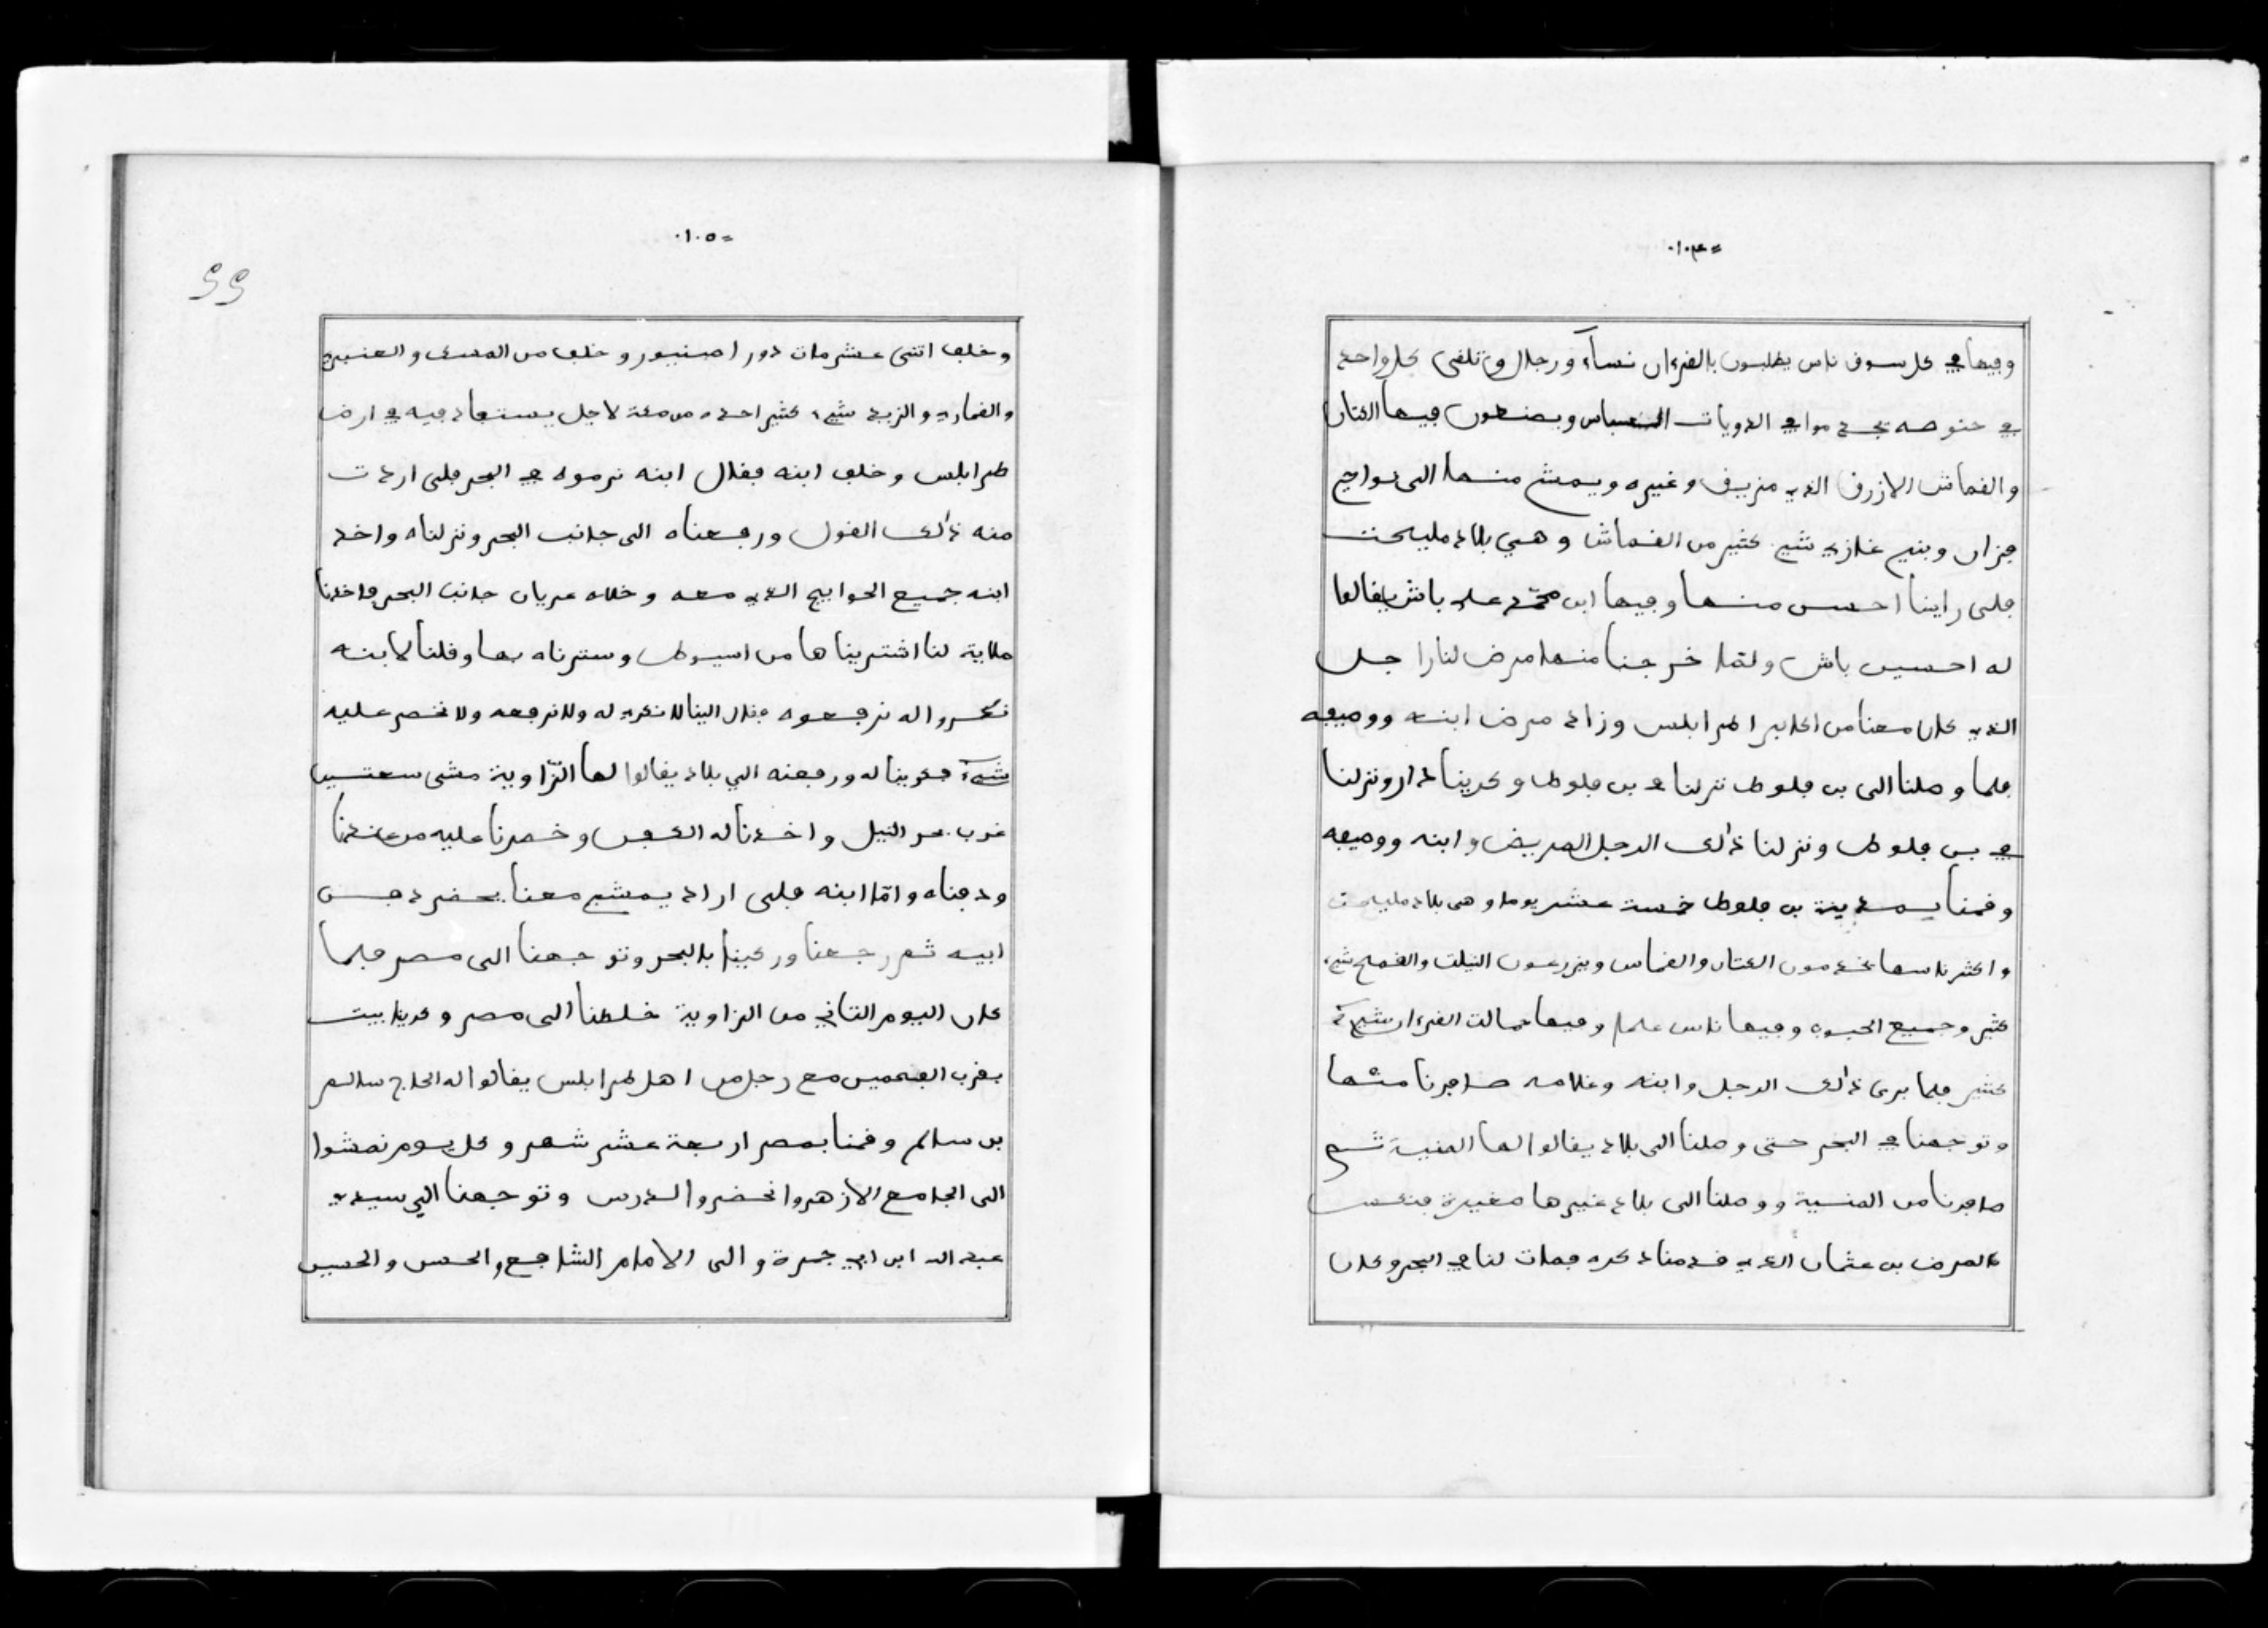 =١٠٤٠
وفيها في كل سوق ناس يطلبون بالقرءان نساء ورجال وتلقى كل واحد
في حنوطه يخدموا في الدويات النعباس ويصنعون فيها الكتان
والقماش الازرق الذي مزيف وغيره ويمش منها الى نواجع
فزان وبنيى غازي شيء كثير من القماش وهي بلاد مليحت
فلى راينا احسن منها وفيها ابن محمد علي باش يقالوا
له احسين باش ولمّا خرجنا منها مرض لنا راجل
الذي كان معنا من اكابر اطرابلس وزاد مرض ابنه ووصيفه
فلما وصلنا الى بن فلوط نزلنا في بن فلوط وكرينا دار ونزلنا
في بن فلوط ونزلنا ذلك الرجل المريض وابنه ووصيفه
وقمنا بمدينة بن فلوط خمسة عشر يوما وهي بلاد مليحت
واكثر ناسها يخدمون الكتان والقماس ويزرعون النيلت والقمح شيء
كثير وجميع الحبوب وفيها ناس علما وفيها حمالت القرءان شيء
كثير فلما برى ذلك الرجل وابنه وغلامه صافرنا منها
وتوجهنا في البحر حتى وصلنا الى بلاد يقالوا لها المنية ثم
صافرنا من المنسية ووصلنا الى بلاد غيرها صغيرة فنكس
المرض بن عثمان الذي قدمنا ذكره فمات لنا في البحر وكان
=١٠٥٠
55
وخلف اتنى عشر مات دورا صنبور وخلف من المسك والعنبر
والقماري والزبد شيء كثير احده من مكة لاجل يستعاد فيه في ارض
طرابلس وخلف ابنه فقال ابنه نرموه في البحر فلى اردت
منه ذلك القول ورفعناه الى جانب البحر ونزلناه واخد
ابنه جميع الحوايج الذي معه وخلاه عريان جانب البحر فاخدنا
ملاية لنا اشتريناها من اسيوط وسترناه بها وقلنا لابنه
نكروا له نرفعوه فقال الينا لا نكري له ولا نرفعه ولا نخصر عليه
شيء فكرينا له ورفعنه الي بلاد يقالوا لها الزّاوية مشى سعتين
غرب بحر النيل واخدنا له الكفن وخصرنا عليه من عندنا
ودفناه وامّا ابنه فلى اراد يمشي معنا يحضر دفن
ابيه ثم رجعنا وركبنا بالبحر وتوجهنا الى مصر فلما
كان اليوم التاني من الزاوية خلطنا الى مصر وكرينا بيت
بقرب الفحمين مع رجل من اهل طرابلس يقالوا له الحاج سالم
بن سالم وقمنا بمصر اربعة عشر شهر وكل يوم نمشوا
الى الجامع الازهر وانحضروا الدرس وتوجهنا الي سيدي
عبد الله ابن ابي جمرة والى الامام الشافع والحسن والحسين